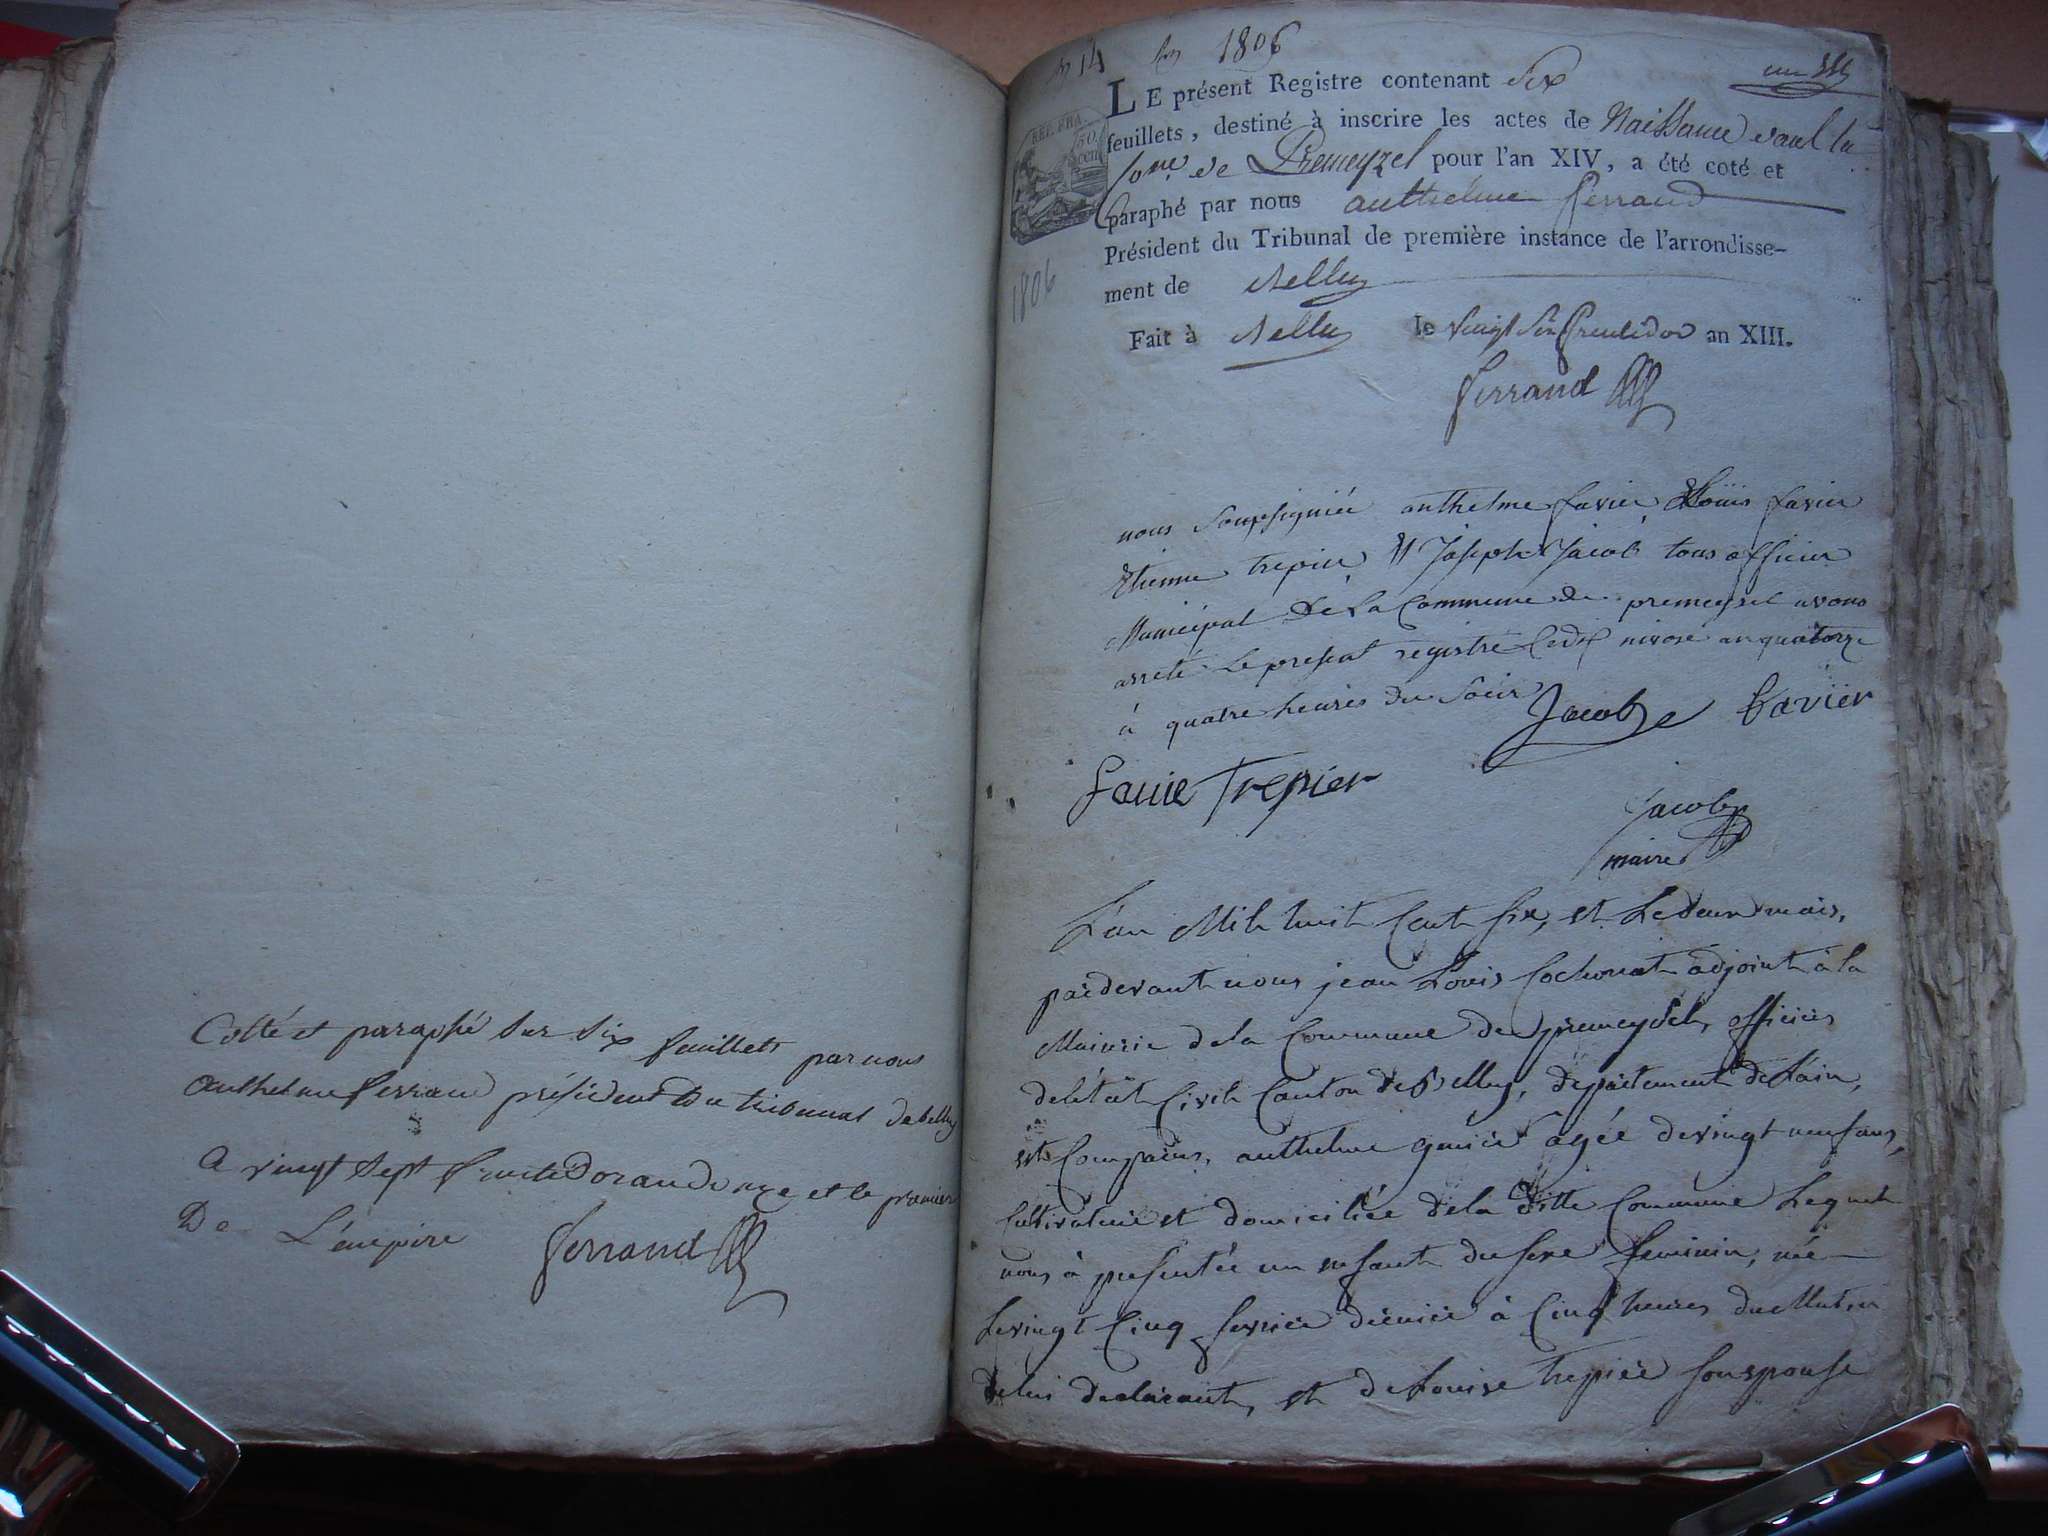 Cotté et paraphé sur six feuillets par nous
Anthelme ferrand président Du tribunal de belley
A vingt sept fructidor an douze et le premier
De L'empire ferrand
an 14 1806
un
LE présent Registre contenant Six
feuillets, destiné à inscrire les actes de Naissance dans la
Come de Premeyzel pour l'an XIV, a été coté et
paraphé par nous anthelme ferrand
Président du Tribunal de première instance de l'arrondisse-
ment de Belley
REP. FRA.
50.
CEN
1806
Fait à Belley le vingt Six fructidor an XIII.
ferrand
nous soupsigniée anthelme favier Louis favier
Etienne trepier et Joseph Jacob tous officier
Municipal de La Commune de premeysel avons
arreté Le present registre Le dix nivose an quatorze
à quatre heures du soir Jacob Favier
favie Trepier
Jacob
maire
L'an Mil huit Cent six, et Le deux mais,
pardevant nous jean Louis Cochonat adjoint à la
Mairie de la Commune de premeysel, officier
de létat Civil Canton de Belley, département de Lain,
est Comparus, anthelme agée de vingt neuf ans,
Cultivateur et domiciliée de la ditte Commune Lequel
nous à presentée un enfant du sexe feminin, née
Le vingt Cinq fevrier dernier à Cinq heures du Matin
de lui declarant, et de Louise trepier son epouse